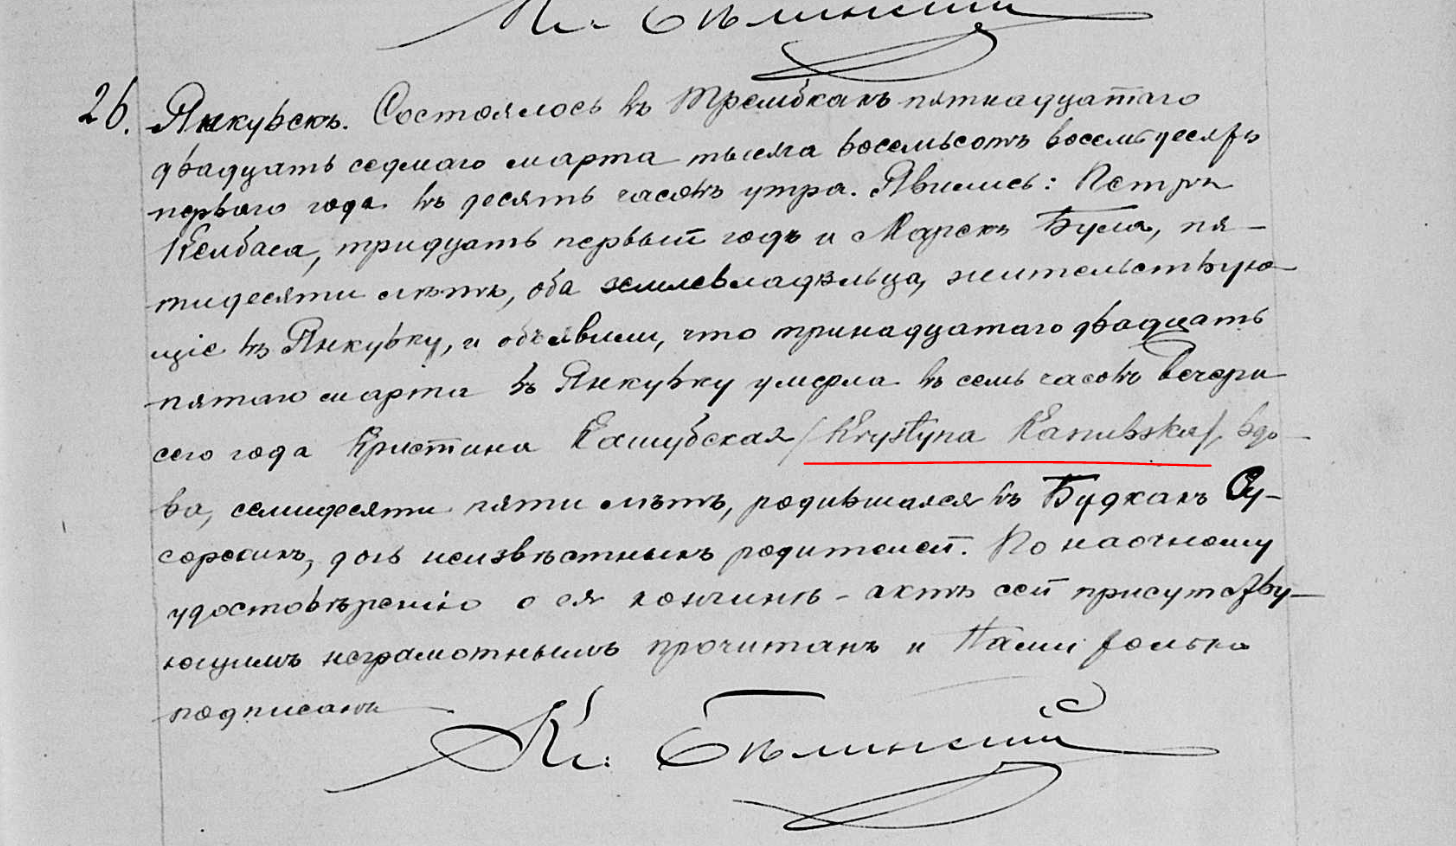 Кс. Бѣлинскій
26. Янкувекъ. Состоялось въ Трембкахъ пятнадцатаго
двадцать седмаго марта тысяча восемьсотъ восемьдесятъ
перваго года въ десять часовъ утра. Явились: Петръ
Келбаса, тридцать первый годъ и Марекъ Була, пя-
тидесяти лѣтъ, оба землевладѣльца, жительствую-
щіе въ Янкувку, и объявили, что тринадцатаго двадцать
пятаго марта въ Янкувку умерла въ семь часовъ вечера
сего года Кристина Кашубская /Krystyna Kaszubska/, вдо-
ва, семидесяти пяти лѣтъ, родившаяся въ Будкахъ Су-
серскихъ, дочь неизвѣстныхъ родителей. По наочному
удостовѣренію о ея кончинѣ - актъ сей присутству-
ющимъ неграмотнымъ прочитанъ и Нами только
подписанъ
Кс. Бѣлинскій